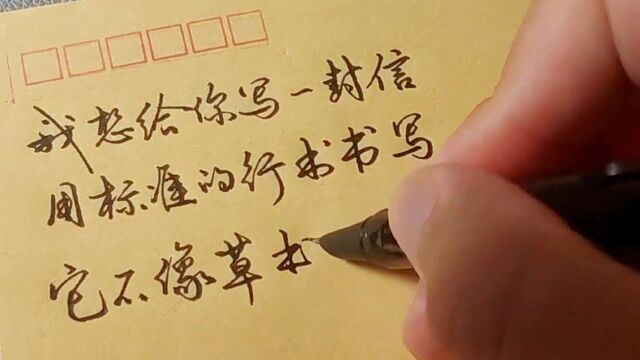 我想给你写一封信
用标准的行书书写
它不像草书